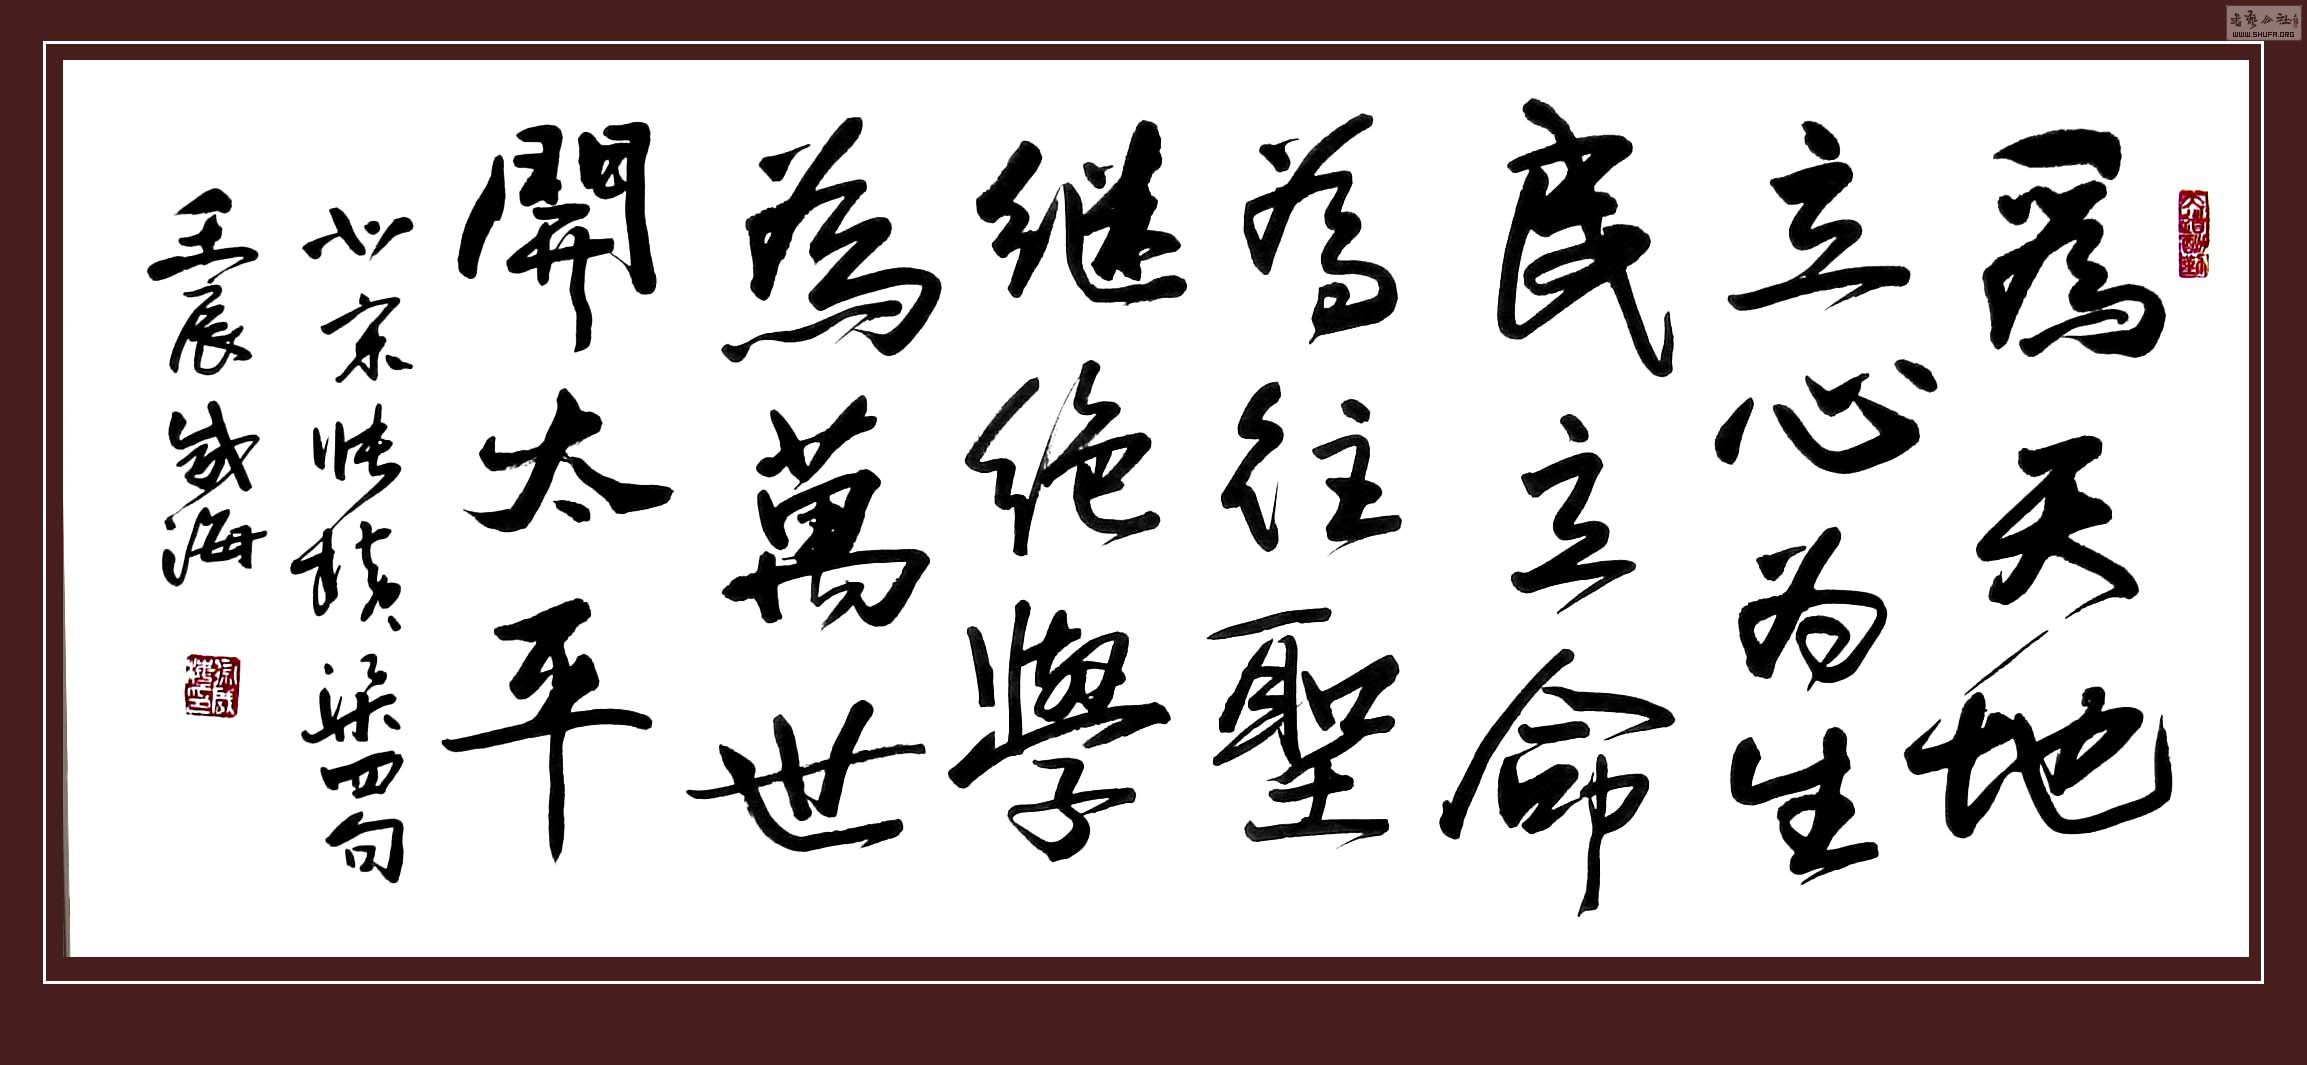 爲天地
立心为生
民立命
為往聖
继绝學
為萬世
開太平
北宋張横渠四句
壬辰 海
天道酬勤
WWW.SHUFA.ORG